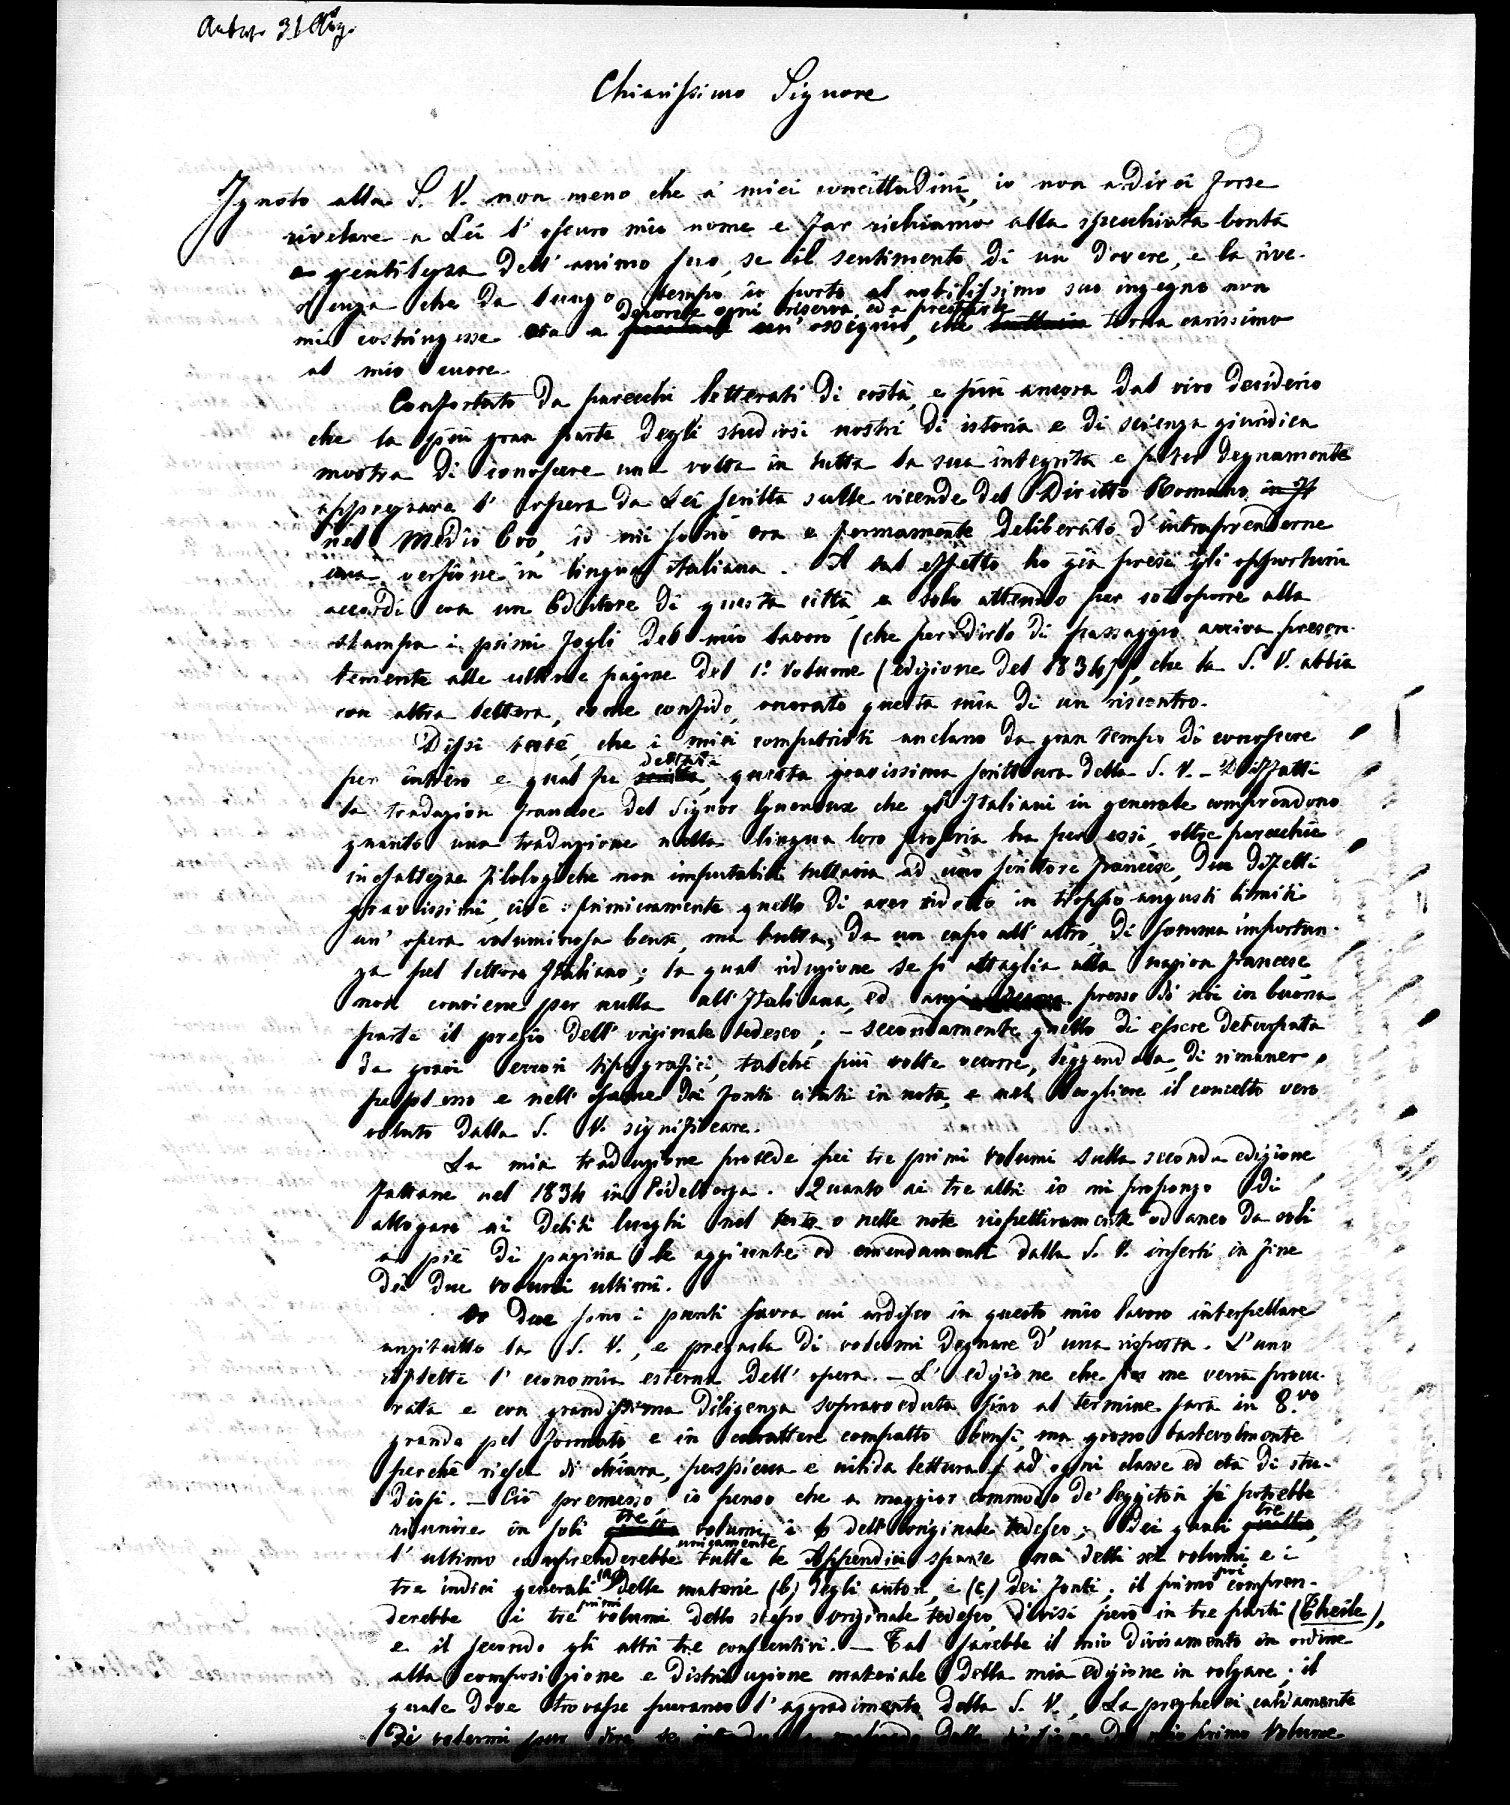 Antw. 31 Aug.
Chiarissimo Signore
Ignoto alla S. V. non meno che a' miei concittadini, io non ardirei forse
rivelare a Lei l'oscuro mio nome e far richiamo alla specchiata bontà
e gentilezza dell'animo suo, se il sentimento di un dovere, e la rive-
renza che da lungo tempo io porto al nobilissimo suo ingegno non
deporre ogni riserva, ed a prestarle
mi costringesse ora a un' ossequio, che torna carissimo
al mio cuore.
Confortato da parecchi letterati di costà, e più ancora dal vivo desiderio
che la più gran parte degli studiosi nostri di istoria e di scienza giuridica
mostra di conoscere una volta in tutta la sua integrità e poter degnamente
apprezzare l'opera da Lei scritta sulle vicende del Diritto Romano in It
nel Medio Evo, io mi sono ora e fermamente deliberato d'intraprenderne
una versione in lingua italiana. A tal effetto ho già presi gli opportuni
accordi con un Editore di questa città, e solo attendo per sottoporre alla
stampa i primi fogli del mio lavoro (che per dirlo di passaggio arriva presen-
temente alle ultime pagine del 1.º volume (edizione del 1834)), che la S. V. abbia
con altra lettera, come confido, onorato questa mia di un riscontro.
Dissi testè, che i miei compatrioti anelano da gran tempo di conoscere
dettata
per intero e qual fu scritta, questa gravissima scrittura della S. V. – Diffatti
la traduzion francese del Signor Guenoux che gl'Italiani in generale comprendono
quanto una traduzione nella lingua loro propria ha per essi, oltre parecchie
inesattezze filologiche non imputabili tuttavia ad uno scrittore francese, due difetti
gravissimi, cioè: primieramente quello di aver ridotto in troppo angusti limiti
un' opera voluminosa bensì, ma tutta, da un capo all'altro, di somma importan-
za pel lettore Italiano; la qual riduzione se si attaglia alla nazion francese
non conviene per nulla all'Italiana, ed anzi presso di noi in buona
parte il pregio dell'originale tedesco; – secondamente quello di essere deturpata
da gravi errori tipografici, talchè più volte occorre, leggendola, di rimaner
perplesso e nell'esame dei fonti citati in nota, e nel cogliere il concetto vero
voluto dalla S. V. significare.
La mia traduzione procede pei tre primi volumi sulla seconda edizione
fattane nel 1834 in Eidelberga. Quanto ai tre altri io mi propongo di
allogare ai debiti luoghi nel testo o nelle note rispettivamente od anco da soli
a piè di pagina le aggiunte ed emendamenti dalla S. V. inserti in fine
dei due volumi ultimi.
Due sono i punti sovra cui ardisco in questo mio lavoro interpellare
anzitutto la S. V., e pregarla di volermi degnare d'una risposta. L'uno
riflette l'economia esterna dell'opera. – L'edizione che per me verrà procu-
rata e con grandissima diligenza sopravveduta sino al termine sarà in 8.vo
grande pel formato, e in carattere compatto bensì, ma grosso bastevolmente
perchè riesca di chiara, perspicua e nitida lettura ad ogni classe ed età di stu-
diosi. – Ciò premesso, io penso che a maggior commodo de' leggitori si potrebbe
tre tre
riunire in soli quattro volumi i 6 dell'originale tedesco; dei quali quattro,
unicamente
l'ultimo comprenderebbe tutte le Appendici sparse nei detti sei volumi e i
poi
tre indici generali (a) delle materie (b) degli autori, e (c) dei fonti; il primo compren-
primi
derebbe i tre volumi dello stesso originale tedesco, divisi però in tre parti (Theile),
e il secondo gli altri tre consecutivi. – Tal sarebbe il mio divisamento in ordine
alla composizione e distribuzione materiale della mia edizione in volgare; il
quale dove trovasse puranco l'aggradimento della S. V., La pregherei caldamente
di volermi pur dire se mio primo volume